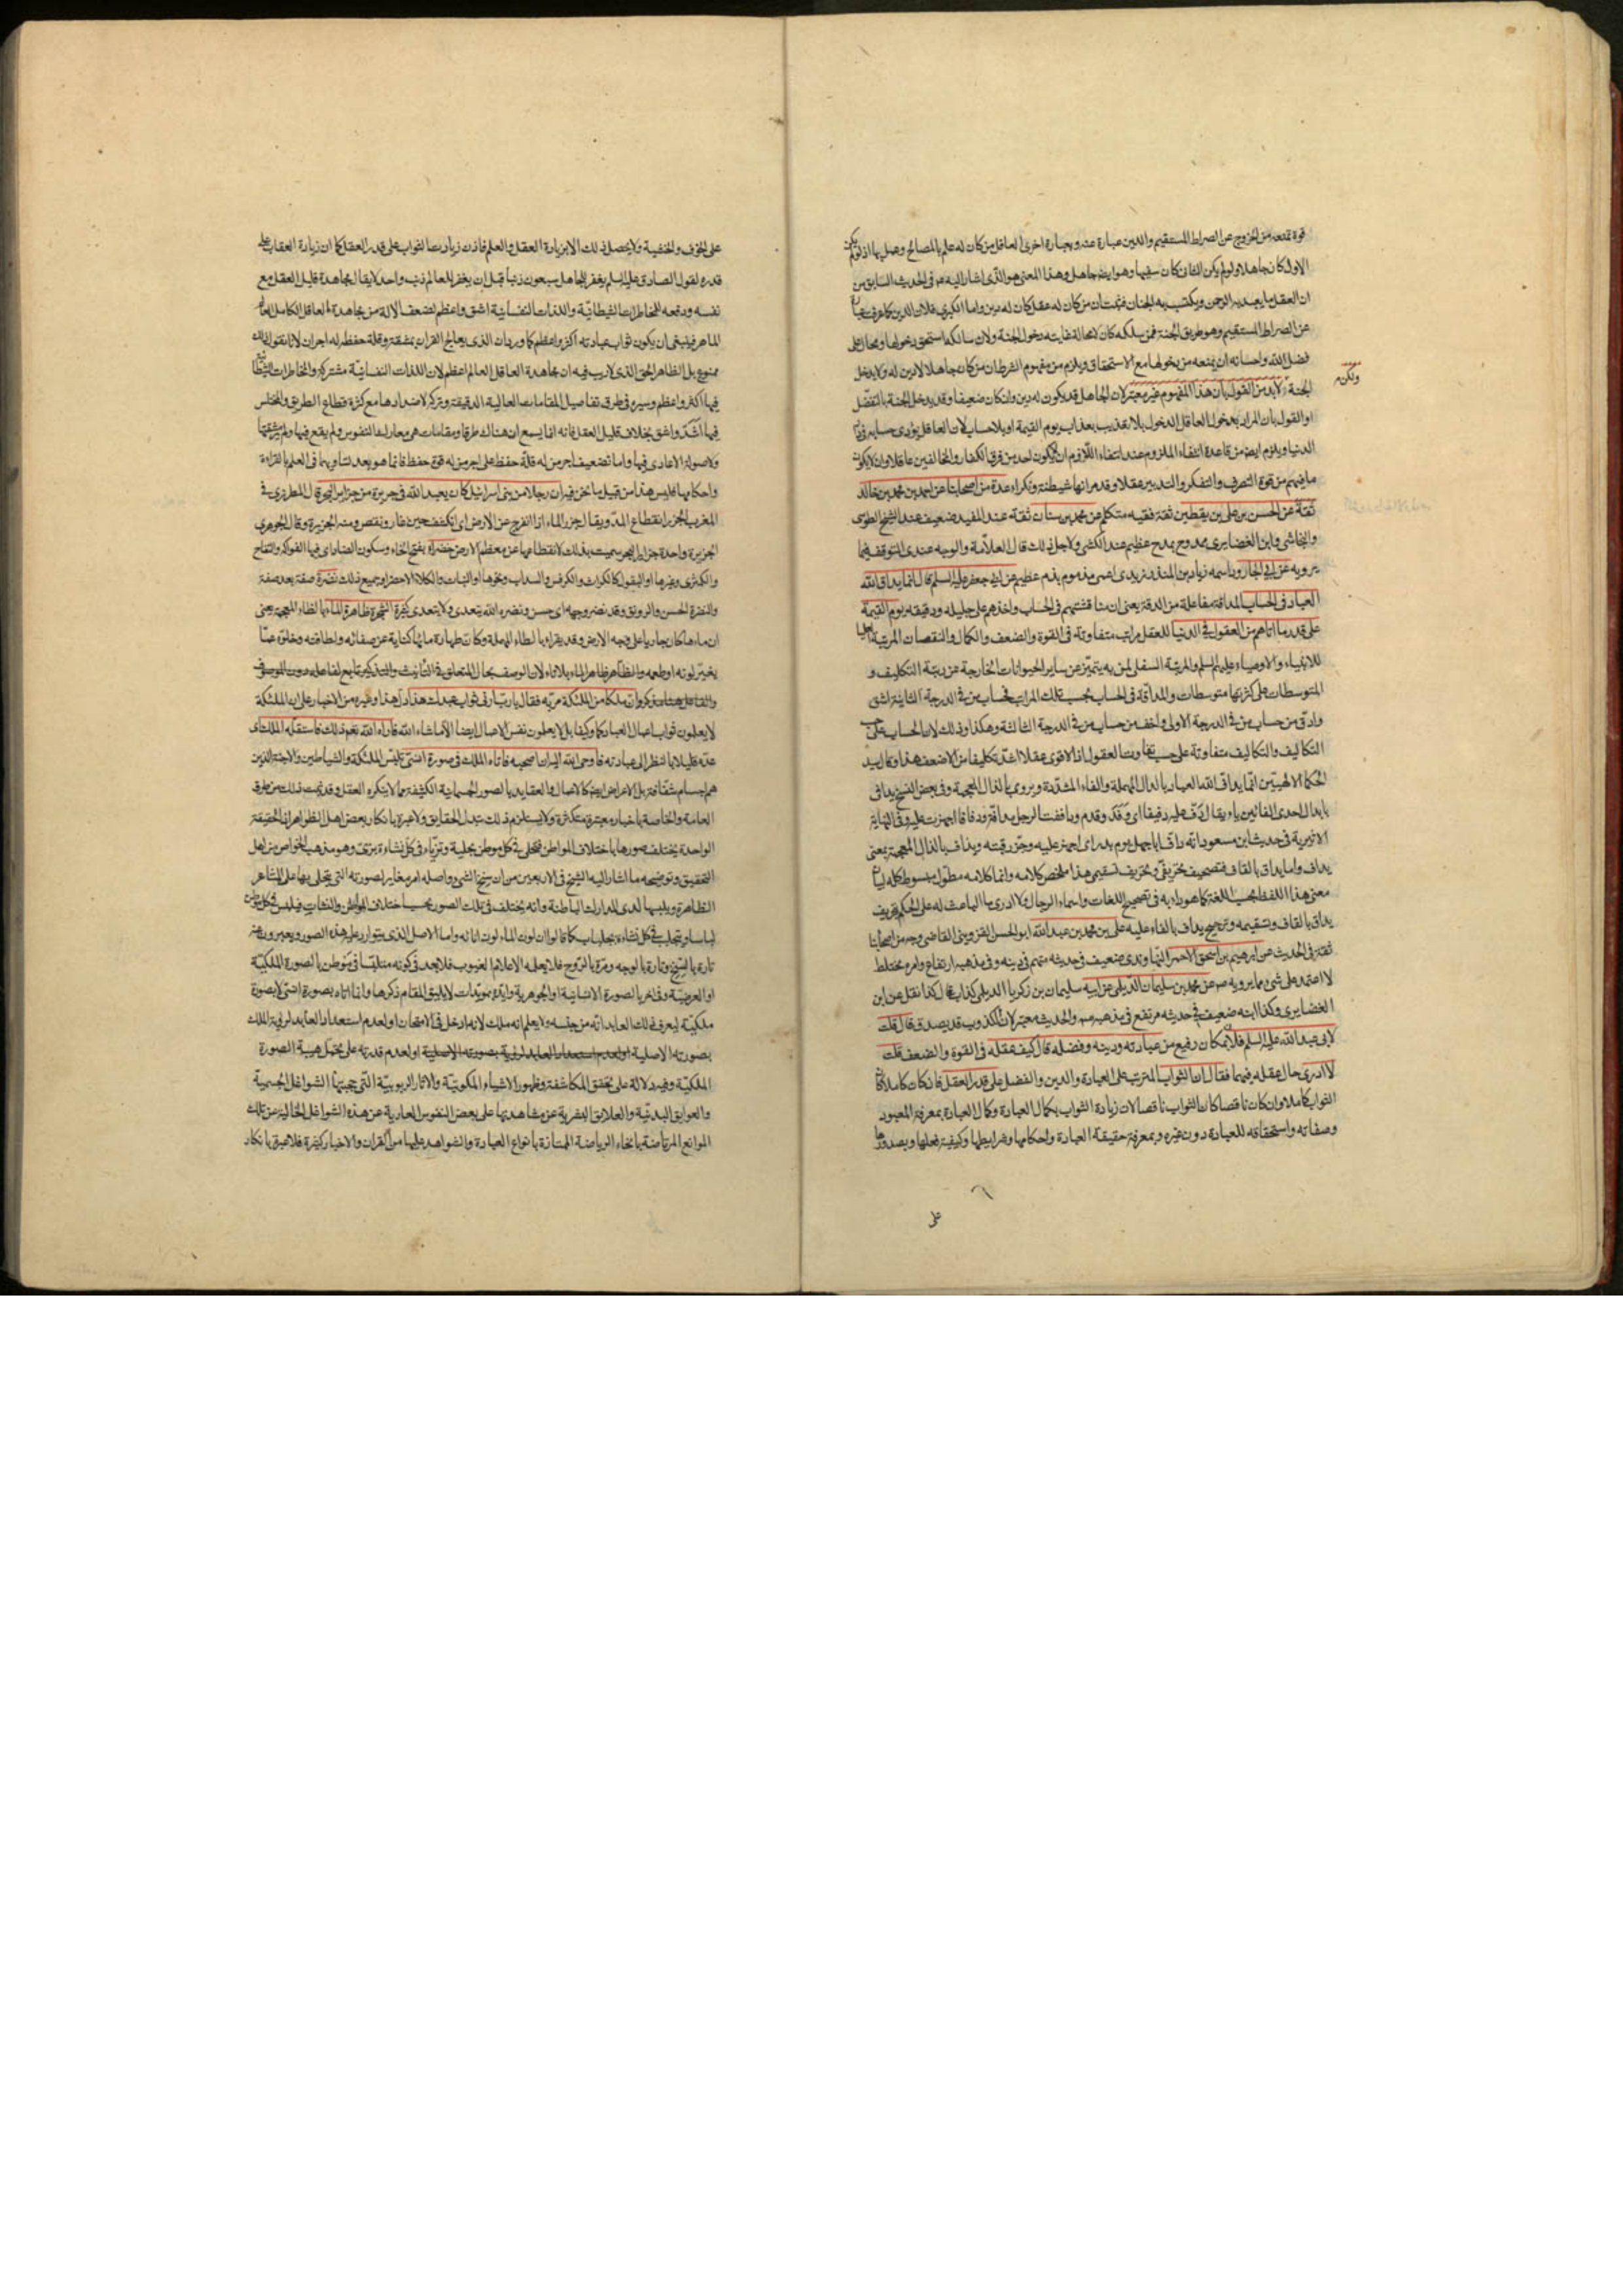 قوة تمنعه من الخروج عن الصراط المستقيم والدين عبارة عنه وبعبارة اخرى العاقل من كان له علم بالمصالح وعمل بها اذ لو لم يكن
الاول كان جاهلا ولو لم يكن الثانى كان سفيها وهو ايضا جاهل وهذا المعنى هو الذى اشار اليه عم فى الحديث السابق من
ان العقل ما يعبد به الرحمن ويكتسب به الجنان فثبت ان من كان له عقل كان له دين واما الكبرى فلان الدين كما عرفت عبارة
عن الصراط المستقيم وهو طريق الجنة فمن سلكه كان لا محالة غايته دخول الجنة ولان سالكه استحق دخولها ومحال على
فضل الله واحسانه ان يمنعه من دخولها مع الاستحقاق ويلزم من مفهوم الشرط ان من كان جاهلا لا دين له ولا يدخل
الجنة ولابد من القول بان هذا المفهوم غير معتبر لان الجاهل قد يكون له دين وان كان ضعيفا وقد يدخل الجنة بالتفضل
او القول بان المراد بدخول العاقل الدخول بلا تعذيب بعذاب يوم القيمة او بلا حساب لان العاقل يؤدى حسابه فى دار
الدنيا ويلزم ايضا من قاعدة انتفاء الملزوم عند انتفاء اللازم ان لا يكون احد من فرق الكفار والمخالفين عاقلا وان لا يكون
ما فيهم من قوة التصرف والتفكر والتدبير عقلا وقد مر انها شيطنة ونكراء عدة من اصحابنا عن احمد بن محمد بن خالد
ثقة عن الحسن بن على بن يقطين ثقة فقيه متكلم عن محمد بن سنان ثقة عند المفيد ضعيف عند الشيخ الطوسى
والنجاشى وابن الغضايرى ممدوح بمدح عظيم عند الكشى ولاجل ذلك قال العلامة والوجه عندى التوقف فيما
يرويه عن ابى الجارود اسمه زياد بن المنذر زيدى اعمى مذموم بذم عظيم عن ابى جعفر عليه السلم قال انما يداق الله
العباد فى الحساب المداقة مفاعلة من الدقة يعنى ان مناقشتهم فى الحساب واخذهم على جليله ودقيقه يوم القيمة
على قدر ما اتاهم من العقول فى الدنيا للعقل مراتب متفاوتة فى القوة والضعف والكمال والنقصان المرتبة العليا
للانبياء والاوصياء عليهم السلم والمرتبة السفلى لمن به يتميز عن ساير الحيوانات الخارجة عن رتبة التكليف و
المتوسطات على كثرتها متوسطات والمداقة فى الحساب بحسب تلك المراتب فحساب من فى الدرجة الثانية اشق
وادق من حساب من فى الدرجة الاولى واخف من حساب من فى الدرجة الثالثة وهكذا وذلك لان الحساب على حسب
التكاليف والتكاليف متفاوتة على حسب تفاوت العقول اذ الاقوى عقلا اشد تكليفا من الاضعف هذا وقال سيد
الحكماء الالهيين انما يداف الله العباد بالدال المهملة والفاء المشددة ويروى بالذال المعجمة وفى بعض النسخ يدافى
بابدال احدى الفائين ياء يقال دف عليه دفيفا اى وفد وقدم وداففت الرجل مدافة ودفافا اجهزت عليه وفى النهاية
الاثيرية فى حديث ابن مسعود انه داف اباجهل يوم بدر اى اجهز عليه وحز رقبته ويذاف بالذال المعجمة بمعنى
يداف واما يداق بالقاف فتصحيف تحريفى وتحريف تسقيمى هذا ملخص كلامه وانما كلامه مطول مبسوط كله لبيان
معنى هذا اللفظ بحسب اللغة كما هو دابه فى تصحيح اللغات واسماء الرجال ولا ادرى ما الباعث له على الحكم بتحريف
يداق بالقاف وتسقيمه وترجيح يداف بالفاء عليه على بن محمد بن عبد الله ابو الحسن القزوينى القاضى وجه من اصحابنا
ثقة فى الحديث عن ابرهيم بن اسحق الاحمر النهاوندى ضعيف فى حديثه متهم فى دينه وفى مذهبه ارتفاع وامره مختلط
لا اعتمد على شىء مما يرويه صه عن محمد بن سليمان الديلمى عن ابيه سليمان بن زكريا الديلمى كذاب قال كذا نقل عن ابن
الغضايرى وكذا ابنه ضعيف فى حديثه مرتفع فى مذهبه صه والحديث معتبر لان الكذوب قد يصدق قال قلت
لابى عبد الله عليه السلم فلان بمكان رفيع من عبادته ودينه وفضله قال كيف عقله فى القوة والضعف قلت
لا ادرى حال عقله فيهما فقال ان الثواب المترتب على العبادة والدين والفضل على قدر العقل فان كان كاملا كان
الثواب كاملا وان كان ناقصا كان الثواب ناقصا لان زيادة الثواب بكمال العبادة وكمال العبادة بمعرفة المعبود
وصفاته واستحقاقه للعبادة دون غيره وبمعرفة حقيقة العبادة واحكامها وشرايطها وكيفية فعلها وبصدورها
على
على الخوف والخشية ولا يحصل ذلك الا بزيادة العقل والعلم فاذن زيادة الثواب على قدر العقل كما ان زيادة العقاب على
قدره لقول الصادق عليه السلم يغفر للجاهل سبعون ذنبا قبل ان يغفر للعالم ذنب واحد لا يقال مجاهدة قليل العقل مع
نفسه ودفعه للمخاطرات الشيطانية واللذات النفسانية اشق واعظم لضعف الالة من مجاهدة العاقل الكامل العالم
الماهر فينبغى ان يكون ثواب عبادته اكثر واعظم كما ورد ان الذى يعالج القران بمشقة وقلة حفظ له اجران لانا نقول ذلك
ممنوع بل الظاهر الحق الذى لا ريب فيه ان مجاهدة العاقل العالم اعظم لان اللذات النفسانية مشتركة والمخاطرات الشيطانية
فيها اكثر واعظم وسيره فى طرق تفاصيل المقامات العالية الدقيقة وتركه لاضدادها مع كثرة قطاع الطريق والمختلس
فيها اشد واشق بخلاف قليل العقل فانه انما يسمع ان هناك طرقا ومقامات هى معارك النفوس ولم يقع فيها ولم ير مشقتها
ولا صولة الاعادى فيها واما تضعيف اجر من له قلة حفظ على اجر من له قوة حفظ فانما هو بعد تساويهما فى العلم بالقراءة
واحكامها فليس هذا من قبيل ما نحن فيه ان رجلا من بنى اسرائيل كان يعبد الله فى جزيرة من جزاير البحر قال المطرزى فى
المغرب الجزر انقطاع المد ويقال جزر الماء اذا انفرج عن الارض اى انكشف حين غار ونقص ومنه الجزيرة وقال الجوهرى
الجزيرة واحدة جزاير البحر سميت بذلك لانقطاعها عن معظم الارض خضراء بفتح الخاء وسكون الضاد اى فيها الفواكه والتفاح
والكمثرى وغيرها او البقول كالكراث والكرفس والسداب ونحوها او النبات والكلاء الاخضر او جميع ذلك نضرة صفة بعد صفة
والنضرة الحسن والرونق وقد نضر وجهه اى حسن ونضره الله يتعدى ولا يتعدى كثيرة الشجرة ظاهرة الماء بالظاء المعجمة يعنى
ان ماءها كان جاريا على وجه الارض وقد يقراء بالطاء المهملة وكان طهارة مائها كناية عن صفائه ولطافته وخلوه عما
يغير لونه او طعمه والظاهر ظاهر الماء بلا تاء لان الوصف بحال المتعلق فى التانيث والتذكير تابع لفاعله دون الموصوف
وان ملكا من الملئكة مر به فقال يا رب ارنى ثواب عبدك هذا دل هذا وغيره من الاخبار على ان الملئكة
لا يعلمون ثواب اعمال العباد كما وكيفا بل لا يعلمون نفس الاعمال ايضا الا ما شاء الله فاراه الله تعم ذلك فاستقله الملك اى
عده قليلا بالنظر الى عبادته فاوحى الله اليه ان اصحبه فاتاه الملك فى صورة انسى تلبس الملئكة والشياطين والاجنة الذين
هم اجسام شفافة بل الاعراض ايضا كالاعمال والعقايد بالصور الجسمانية الكثيفة مما لا ينكره العقل وقد ثبت ذلك من طرق
العامة والخاصة باخبار معتبرة متكثرة ولا يستلزم ذلك تبدل الحقايق ولا عبرة بانكار بعض اهل الظواهر اذ الحقيقة
الواحدة يختلف صورها باختلاف المواطن فتحلى فى كل موطن بحلية وتزياء فى كل نشاءة بزى وهو مذهب الخواص من اهل
التحقيق وتوضيحه ما اشار اليه الشيخ فى الاربعين من ان سنخ الشىء واصله امر مغاير لصورته التى يتجلى بها على المشاعر
الظاهرة ويلبسها لدى المدارك الباطنة وانه يختلف فى تلك الصور بحسب اختلاف المواطن والنشات فيلبس فى كل موطن
لباسا ويتجلبب فى كل نشاءة بجلباب كما قالوا ان لون الماء لون انائه واما الاصل الذى يتوارد عليه هذه الصور ويعبرون عنه
تارة بالسنخ وتارة بالوجه ومرة بالروح فلا يعلمه الا علام الغيوب فلا بعد فى كونه متلبسا فى موطن بالصورة الملكية
او العرضية وفى اخر بالصورة الانسانية او الجوهرية وايدوه بمويدات لا يليق المقام ذكرها وانما اتاه بصورة انسى لا بصورة
ملكية ليعرف ذلك العابد انه من جنسه ولا يعلم انه ملك لانه ادخل فى الامتحان او لعدم استعداد العابد لرؤية الملك
بصورته الاصلية او لعدم استعداد العابد لرؤية بصورته الاصلية او لعدم قدرته على تحمل هيبة الصورة
الملكية وفيه دلالة على تحقق المكاشفة وظهور الاشياء الملكوتية والاثار الربوبية التى حجبتها الشواغل الجسمية
والعوايق البدنية والعلايق البشرية عن مشاهدتها على بعض النفوس العارية عن هذه الشواغل الخالية عن تلك
الموانع المرتاضة بانحاء الرياضة الممتازة بانواع العبادة والشواهد عليها من القران والاخبار كثيرة فلا عبرة بانكار